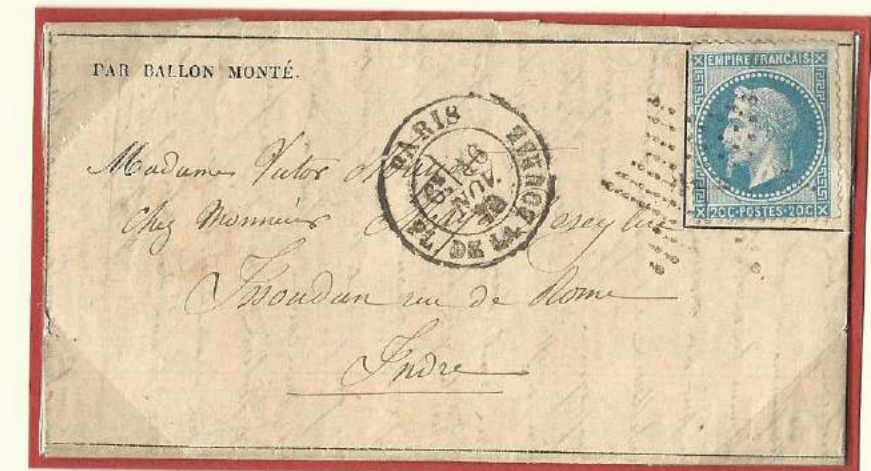 PAR BALLON MONTÉ.
EMPIRE FRANÇAIS
20C·POSTES·20C
PARIS
PL. DE LA BOURSE
Madame Victor
chez Monsieur
Issoudun rue de Rome
Indre